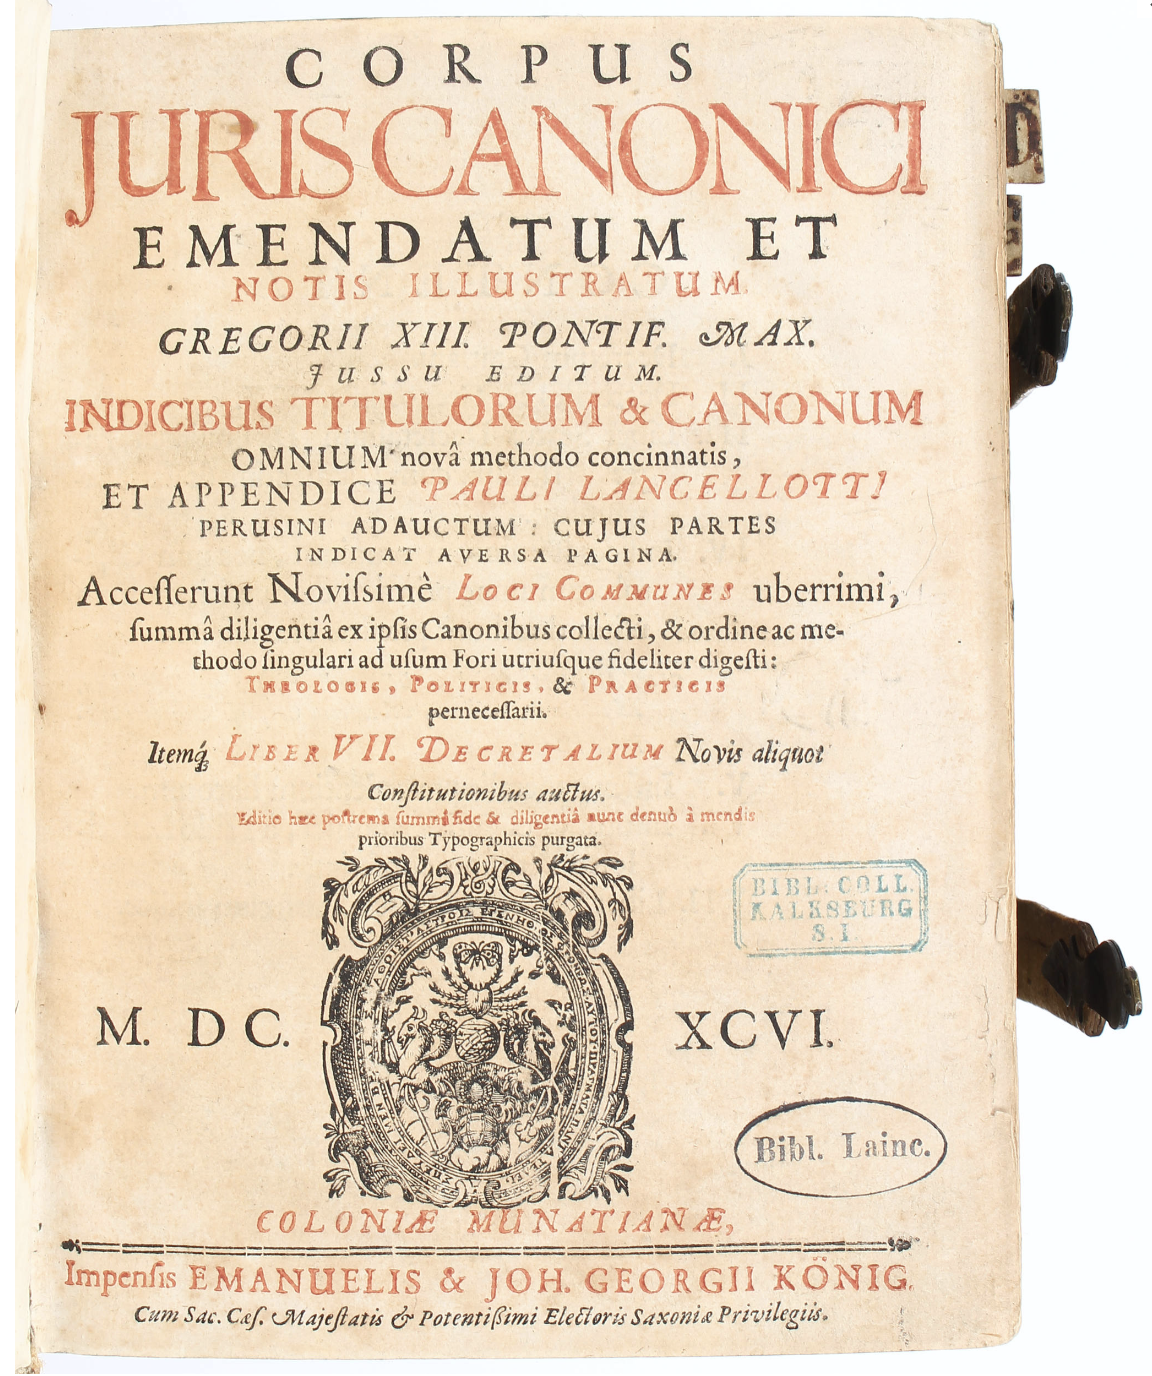 CORPUS
JURIS CANONICI
EMENDATUM ET
NOTIS ILLUSTRATUM
GREGORII XIII. PONTIF. MAX.
JUSSU EDITUM.
INDICIBUS TITULORUM & CANONUM
OMNIUM novâ methodo concinnatis,
ET APPENDICE PAULI LANCELLOTTI
PERUSINI ADAUCTUM: CUJUS PARTES
INDICAT AVERSA PAGINA.
Accesſerunt Noviſsimè LOCI COMMUNES uberrimi,
ſummâ diligentiâ ex ipſis Canonibus collecti, & ordine ac me-
thodo ſingulari ad uſum Fori utriuſque fideliter digeſti:
THEOLOGIS, POLITICIS, & PRACTICIS
perneceſſarii.
Itemq́; LIBER VII. DECRETALIUM Novis aliquot
Conſtitutionibus auctus.
Editio hæc poſtrema ſummâ fide & diligentiâ nunc denuò à mendis
prioribus Typographicis purgata.
BIBL. COLL.
KALKSBURG
S. I.
M. DC. XCVI.
Bibl. Lainc.
COLONIÆ MUNATIANÆ,
Impenſis EMANUELIS & JOH. GEORGII KÖNIG.
Cum Sac. Cæſ. Majeſtatis & Potentiſsimi Electoris Saxoniæ Privilegiis.